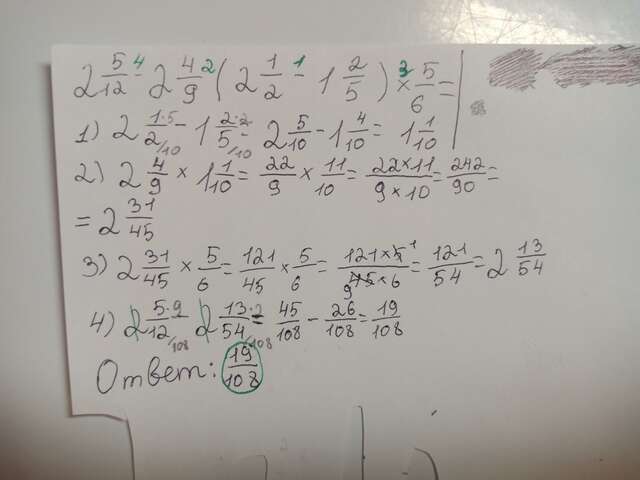 2 5/12 -⁴ 2 4/9 ²(2 1/2 -¹ 1 2/5) ×³ 5/6 =
1) 2 1·5/2/10 - 1 2·2/5/10 = 2 5/10 - 1 4/10 = 1 1/10
2) 2 4/9 × 1 1/10 = 22/9 × 11/10 = 22×11/9×10 = 242/90 =
= 2 31/45
3) 2 31/45 × 5/6 = 121/45 × 5/6 = 121×5 1/9 45×6 = 121/54 = 2 13/54
4) 2 5·9/12/108 - 2 13·2/54/108 = 45/108 - 26/108 = 19/108
Ответ: 19/108